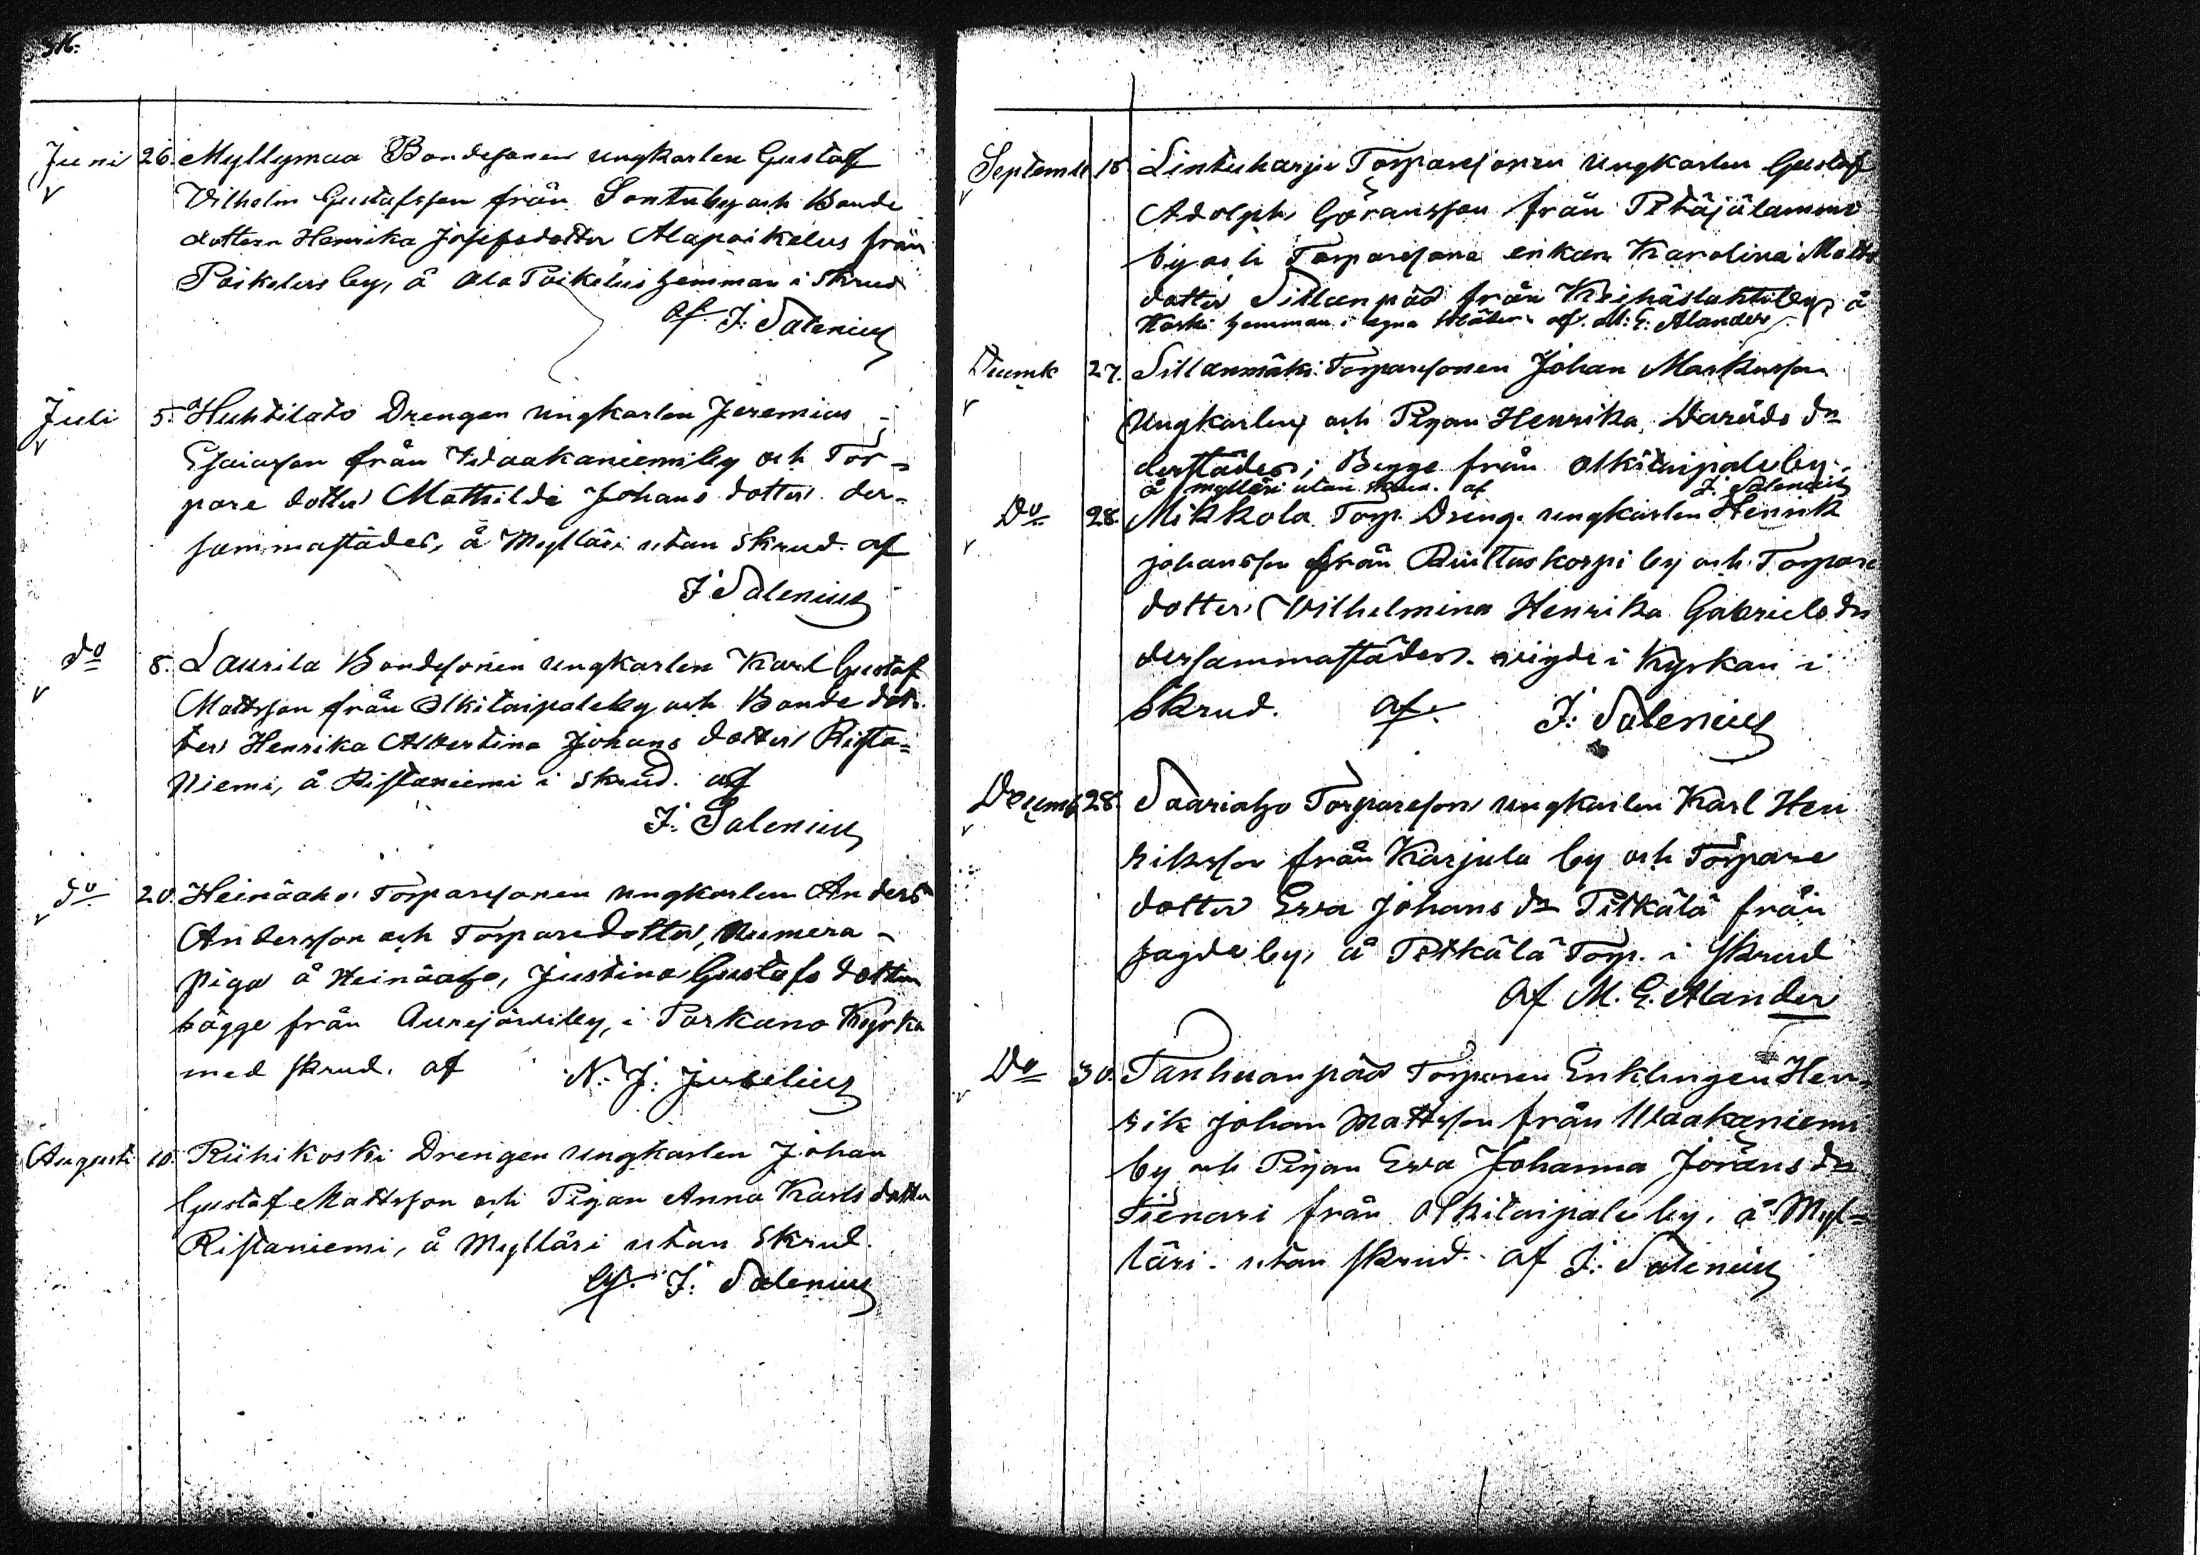 316.
Juni 26. Myllymaa Bondesonen ungkarlen Gustaf
Vilhelm Gustafsson från Sontuby och Bonde
dottern Henrika Josefsdotter Alapoikelus från
Poikelus by, å Ala Poikelus hemman i Skrud
af J: Salenius
Juli 5. Huhtilato Drengen ungkarlen Jeremias
Esaiasson från Vidaakaniemiby och Tor-
pare dotter Mathilda Johans dotter der-
sammastädes, å Mylläri utan Skrud. af
J Salenius
do 8. Laurila Bondesonen ungkarlen Karl Gustaf
Mattsson från Alkitaipaleby och Bonde dot-
ter Henrika Albertina Johans dotter Rista-
niemi, å Ristaniemi i Skrud. af
J: Salenius
do 20. Heinäaho Torparesonen ungkarlen Anders
Andersson och Torparedotter, Numera
piga å Heinäaho, Justina Gustafs dotter
bägge från Aurejärviby, i Parkano Kyrka
med skrud. af N: J: Juselius
Augusti 10. Riihikoski Drengen ungkarlen Johan
Gustaf Mattsson och Pigan Anna Karls dotter
Ristaniemi, å Mylläri utan Skrud.
af. J: Salenius
Septemb 18 Lintuharju Torparesonen ungkarlen Gustaf
Adolph Göransson från Petäjälammi
by och Torparesons enkan Karolina Matts
dotter Sillanpää från Keihäslahtiby, å
Koski hemman i egna kläder af. M: E: Alander
Decemb 27. Sillanmäki Torparesonen Johan Markusson
Ungkarlen och Pigan Henrika Davids dr
derstädes; Begge från Alkitaipaleby.
å Mylläri utan skrud. af J. Salenius
Do 28. Mikkola Torp. Dreng. ungkarlen Henrik
Johansson från Kuittaskorpi by och Torpare
dotter Vilhelmina Henrika Gabriels dr
dersammastädes. vigde i Kyrkan i
Skrud. af. J: Salenius
Decemb 28. Saariaho Torpareson ungkarlen Karl Hen
riksson från Karjula by och Torpare
dotter Eva Johans dr Pitkälä från
sagde by, å Pitkälä Torp. i Skrud
af M. E. Alander
Do 30. Tanhuanpää Torparen Enklingen Hen-
rik Johan Mattsson från Vidaakaniemi
by och Pigan Eva Johanna Jörans dr
Tienari från Alkitaipale by. å Myl-
läri. utan skrud. af J: Salenius